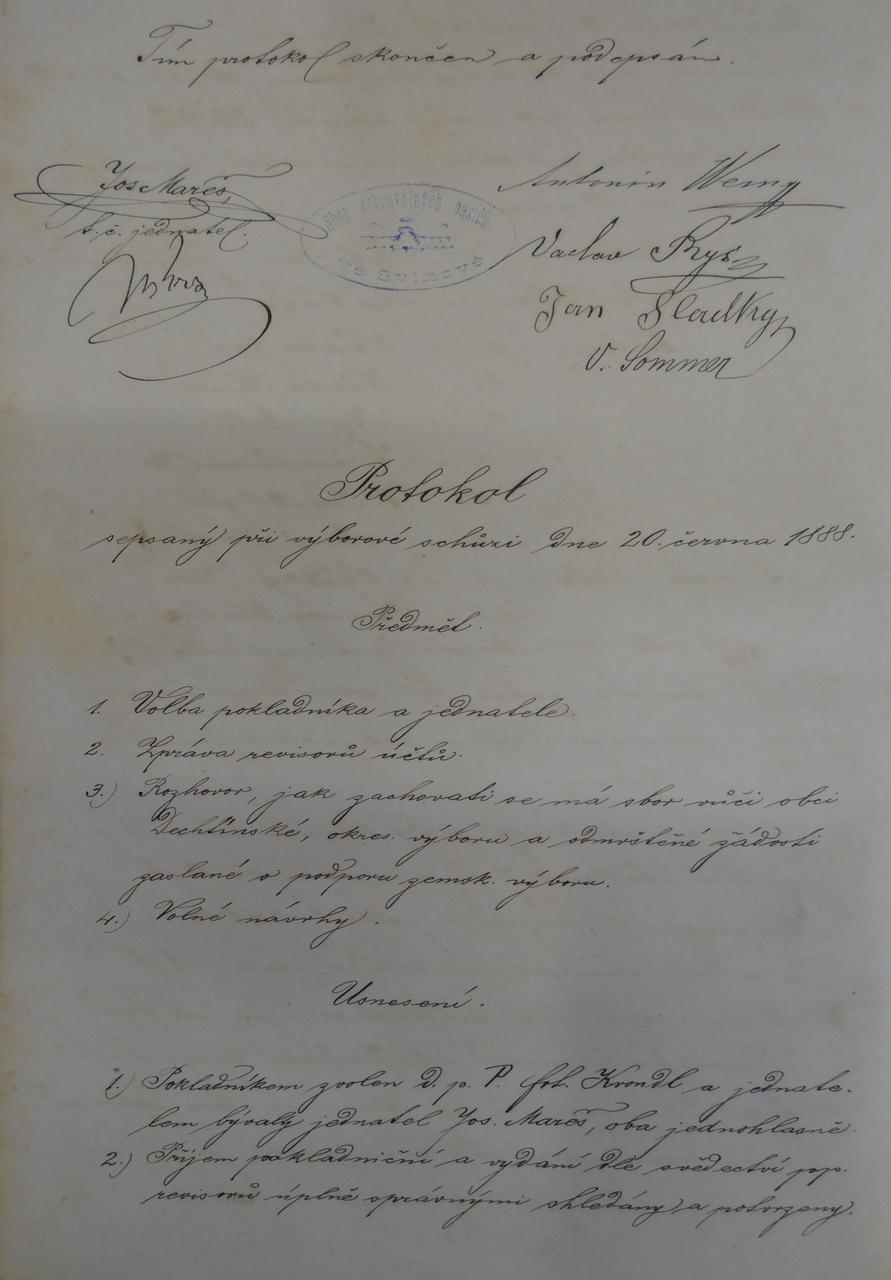 Tím protokol skončen a podepsán.
Jos Mareš,
t. č. jednatel.
Sbor dobrovolných hasičů
ve Svinově
Antonín
Václav Ryš
Jan Sladký
V. Sommer
Protokol
sepsaný při výborové schůzi dne 20. června 1888.
Předmět.
1. Volba pokladníka a jednatele.
2. Zpráva revisorů účtů.
3.) Rozhovor, jak zachovati se má sbor vůči obci
Dechtínské, okres. výboru a odmrštěné žádosti
zaslané o podporu zemsk. výboru.
4.) Volné návrhy.
Usnesení.
1.) Pokladníkem zvolen D. p. P. Krondl a jednate-
lem bývalý jednatel Jos. Mareš, oba jednohlasně.
2.) Příjem pokladniční a vydání dle svědectví pp.
revisorů úplně správnými shledány a potvrzeny.